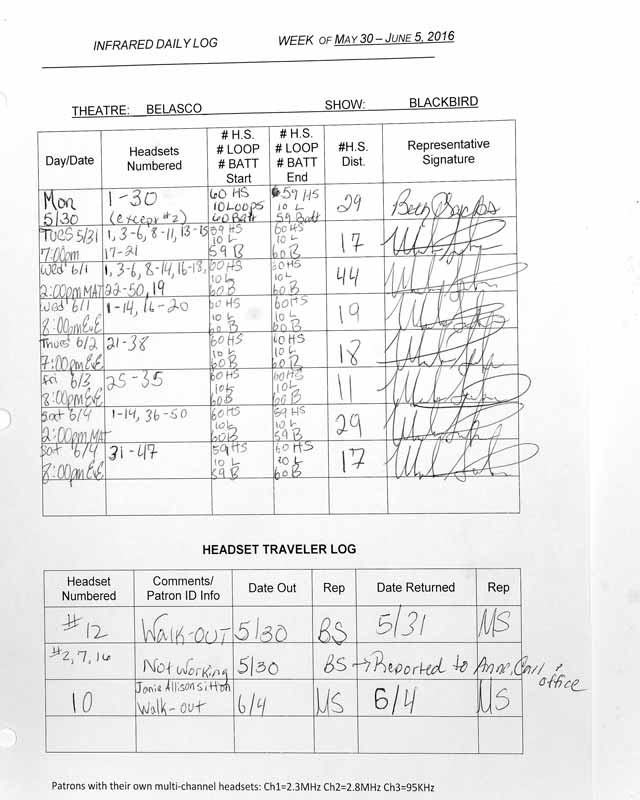 INFRARED DAILY LOG WEEK OF MAY 30 – JUNE 5, 2016
THEATRE: BELASCO SHOW: BLACKBIRD
Day/Date Headsets Numbered # H.S. # LOOP # BATT Start # H.S. # LOOP # BATT End #H.S. Dist. Representative Signature
Mon 5/30 1-30 (except #2) 60 HS 10 Loops 60 Batt 59 HS 10 L 59 Batt 29
TUES 5/31 7:00pm 1, 3-6, 8-11, 13-15 17-21 59 HS 10 L 59 B 60 HS 10 L 60 B 17
Wed 6/1 2:00pm MAT 1, 3-6, 8-14, 16-18, 22-50, 19 60 HS 10 L 60 B 60 HS 10 L 60 B 44
Wed 6/1 8:00pm EvE 1-14, 16-20 60 HS 10 L 60 B 60 HS 10 L 60 B 19
Thues 6/2 7:00pm EvE 21-38 60 HS 10 L 60 B 60 HS 10 L 60 B 18
Fri 6/3 8:00pm EvE 25-35 60 HS 10 L 60 B 60 HS 10 L 60 B 11
Sat 6/4 2:00pm MAT 1-14, 36-50 60 HS 10 L 60 B 59 HS 10 L 59 B 29
Sat 6/4 8:00pm EvE 31-47 59 HS 10 L 59 B 60 HS 10 L 60 B 17
HEADSET TRAVELER LOG
Headset Numbered Comments/ Patron ID Info Date Out Rep Date Returned Rep
#12 WALK-OUT 5/30 BS 5/31 MS
#2, 7, 16 Not Working 5/30 BS → Reported to Anne, Carl & office
10 Janie Allison Sitton Walk-out 6/4 MS 6/4 MS
Patrons with their own multi-channel headsets: Ch1=2.3MHz Ch2=2.8MHz Ch3=95KHz